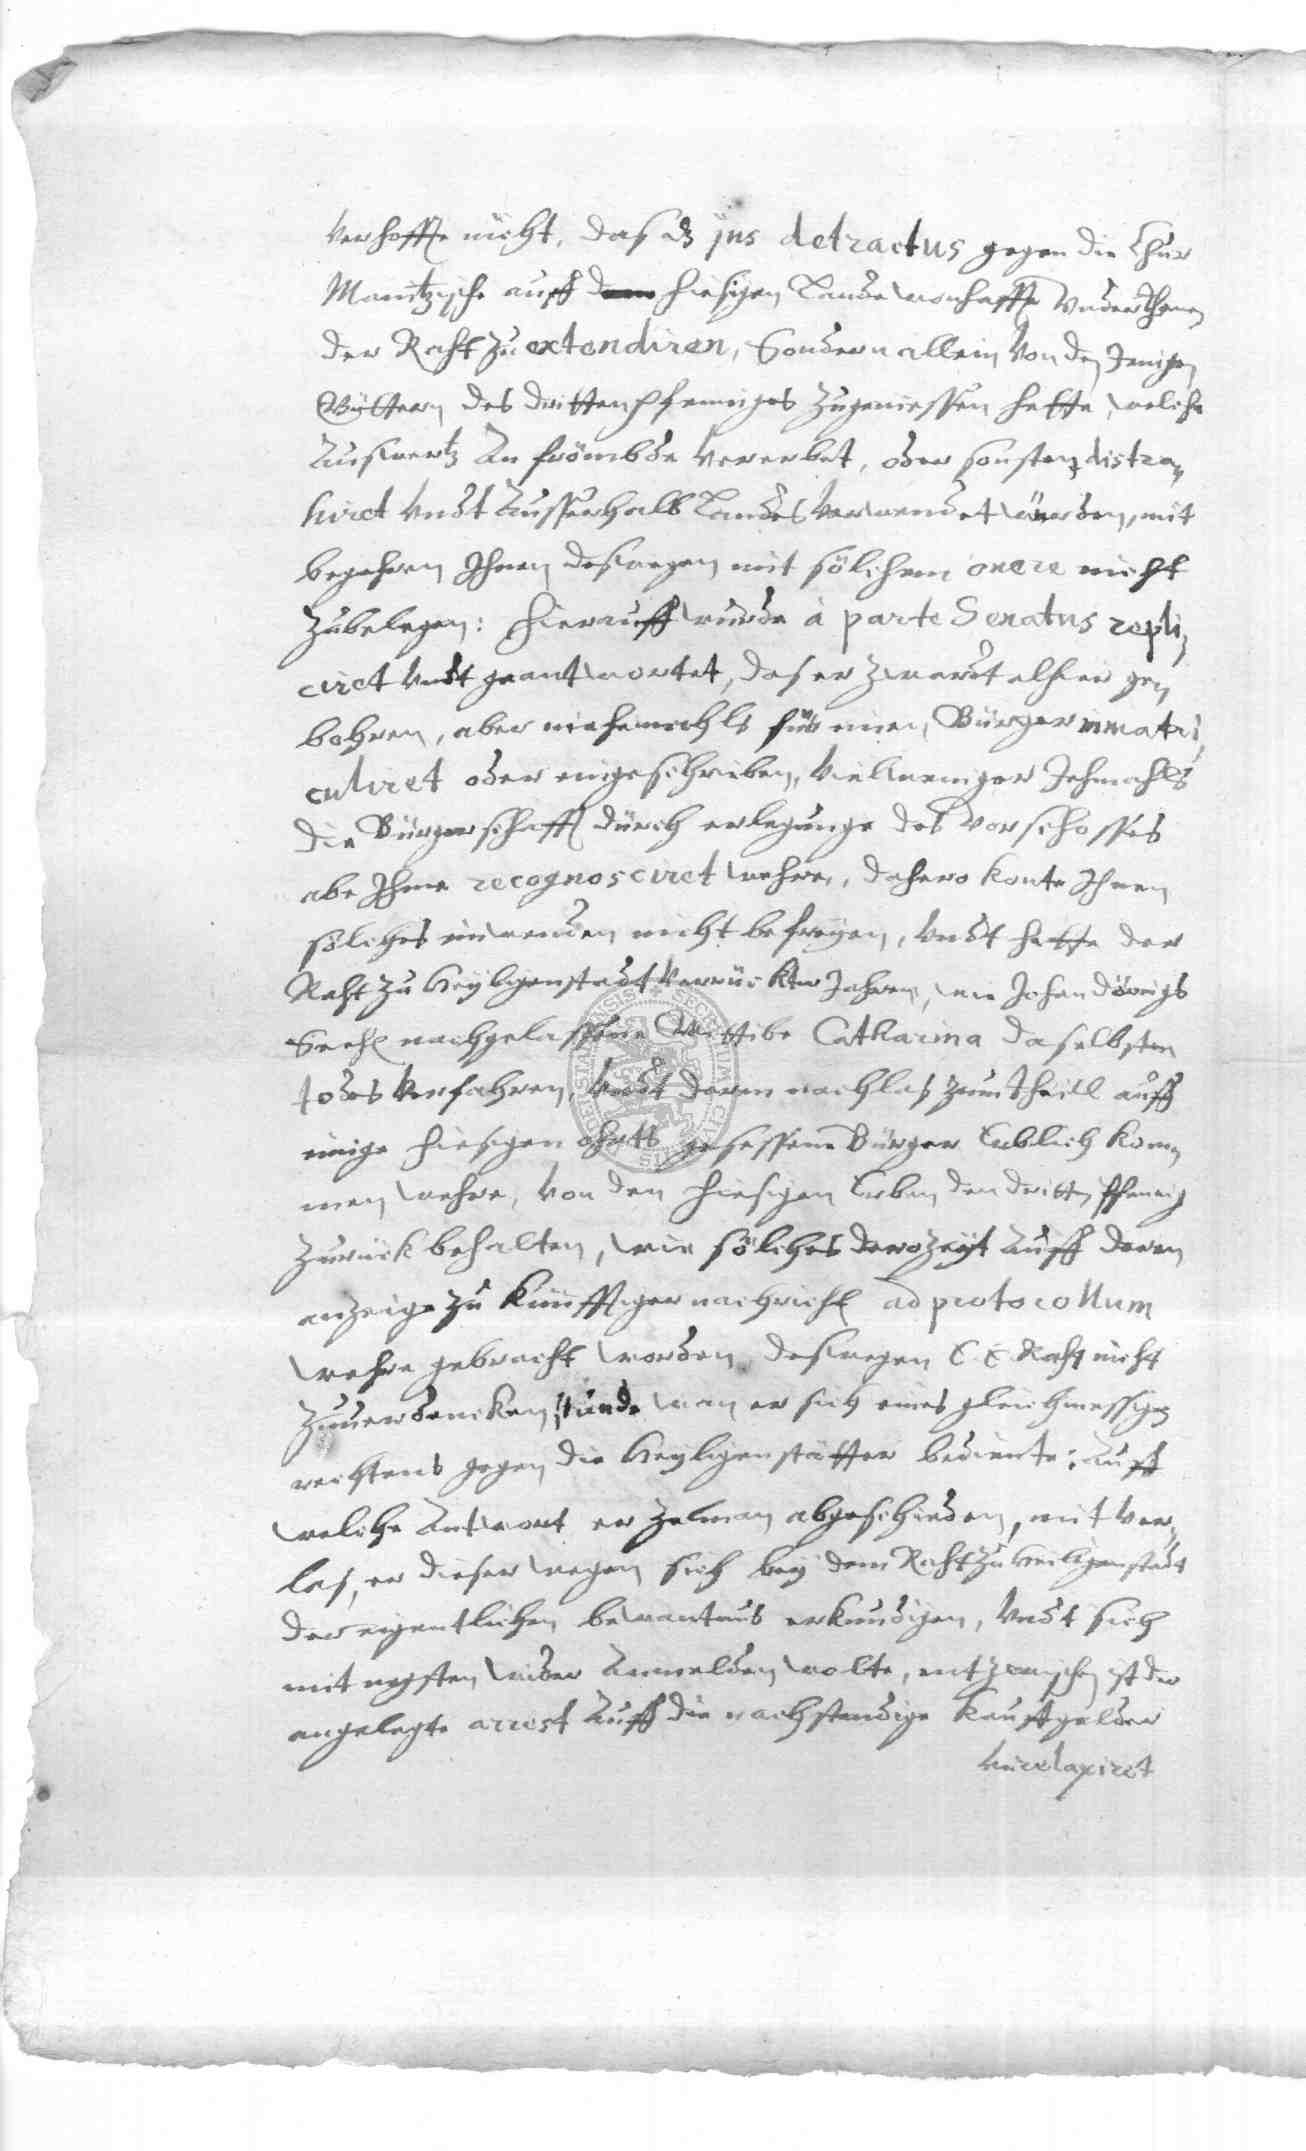 verhoffe nicht, daß dz jus detractus gegen die Chur
Maintzische auff hiesigen Lande wonhaffte Underthanen
der Raht zu extendiren, Sondern allein von den Jenigen
Güttern des dritten Pfenniges zugeniessen hette, welche
Auswertz An frömbde vererbet, oder sonsten distra-
hiret undt Ausserhalb Landes verwendet würden, mit
begehren Ihnen deswegen mit sölchem onere nicht
zubelegen: Hierauff wurde à parte Senatus repli-
ciret undt geantwortet, das er zwardt alhier ge-
bohren, aber niehemahls für einen Bürger immatri-
culiret oder eingeschrieben, viellweniger Jehmahls
die Bürgerschafft durch erlegunge des vorschosses
abe Ihme recognosciret wehre, dahero konte Ihnen
sölches einwenden nicht befreyen, undt hette der
Raht zu Heyligenstadt verrückter Jahren, wie Johan Dörings
Seel. nachgelassene Wittibe Catharina daselbsten
todes verfahren, undt deren nachlas zum theill auff
einige hiesigen ohrtts gesessene Bürger Erblich kom-
men wehre, von den hiesigen Erben den dritten Pfennig
zurück behalten, wie sölches derozeyt Auff deren
anzeige zu künfftiger nachricht ad protocollum
wehre gebracht worden, deswegen E. E. Raht nicht
zuuerdencken stunde, wan er sich eines gleichmessigen
rechtens gegen die Heyligenstätter bediente: Auff
welche Antwort er Zelman abgeschieden, mit ver-
las, er dieser wegen sich bey dem Raht zu Heiligenstadt
der eigentlichen bewantnus erkundigen, undt sich
mit negsten wider Anmelden wolte, entzwischen ist der
angelegte arrest Auff die nachstendige Kauffgelder
unrelaxiret